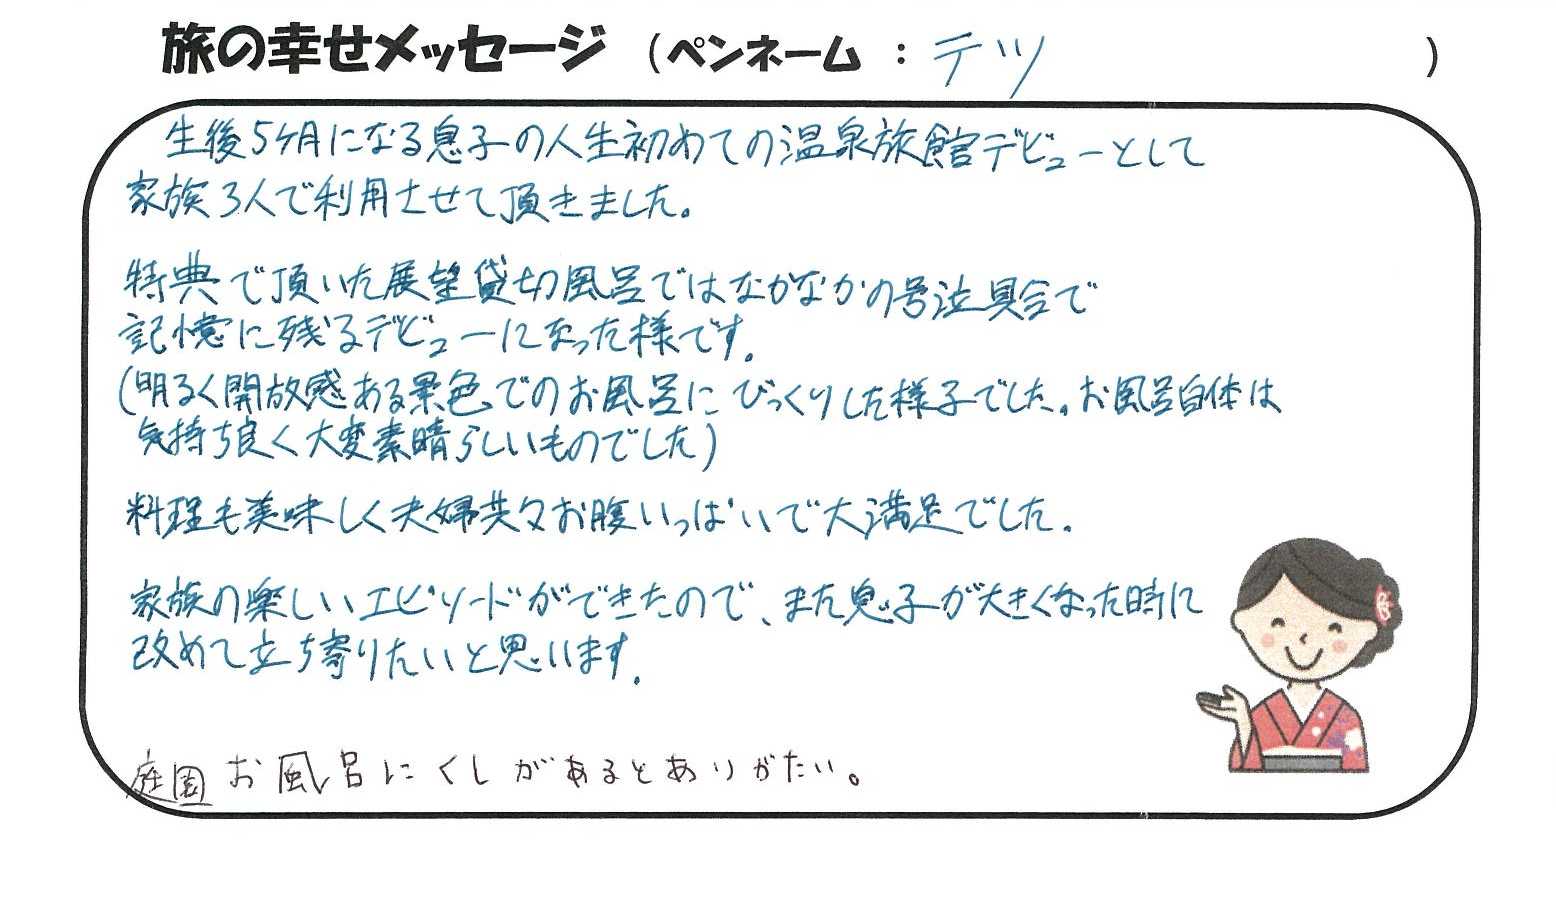 旅の幸せメッセージ （ペンネーム ： テツ ）
生後5ヶ月になる息子の人生初めての温泉旅館デビューとして
家族3人で利用させて頂きました。
特典で頂いた展望貸切風呂ではなかなかの号泣具合で
記憶に残るデビューになった様です。
(明るく開放感ある景色でのお風呂にびっくりした様子でした。お風呂自体は
気持ち良く大変素晴らしいものでした)
料理も美味しく夫婦共々お腹いっぱいで大満足でした。
家族の楽しいエピソードができたので、また息子が大きくなった時に
改めて立ち寄りたいと思います。
庭園お風呂にくしがあるとありがたい。